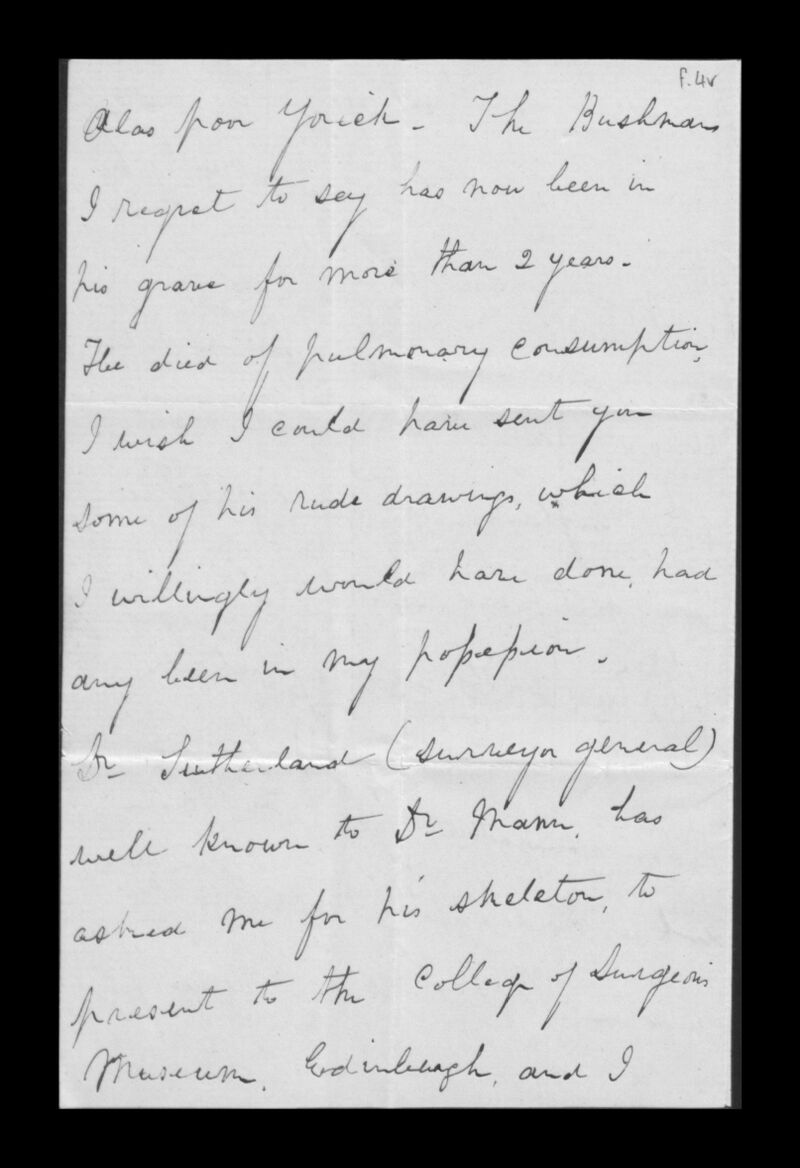 f.4v
Alas poor Yorick - The Bushman
I regret to say has now been in
his grave for more than 2 years -
He died of pulmonary consumption,
I wish I could have sent you
some of his rude drawings, which
I willingly would have done, had
any been in my possession.
Dr Sutherland (surveyor general)
well known to Dr Mann, has
asked me for his skeleton, to
present to the College of Surgeons
Museum, Edinburgh, and I